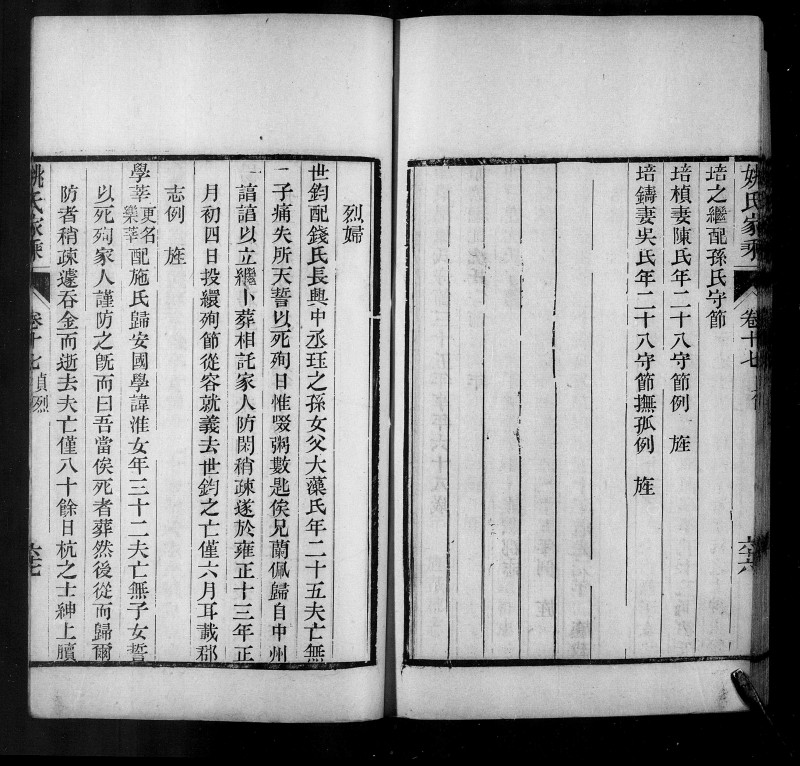 姚氏家乘
卷十七
六六
培之繼配孫氏守節
培楨妻陳氏年二十八守節例　旌
培鑄妻吳氏年二十八守節撫孤例　旌
烈婦
世鈞配錢氏長興中丞珏之孫女父大藻氏年二十五夫亡無
子痛失所天誓以死殉日惟啜粥數匙俟兄蘭佩歸自中州
諳諳以立繼卜葬相託家人防閑稍疎遂於雍正十三年正
月初四日投繯殉節從容就義去世鈞之亡僅六月耳載郡
志例　旌
學莘更名樂莘配施氏歸安國學諱淮女年三十二夫亡無子女誓
以死殉家人謹防之旣而曰吾當俟死者葬然後從而歸爾
防者稍疎遽吞金而逝去夫亡僅八十餘日杭之士紳上牘
姚氏家乘
卷十七
貞烈
六七